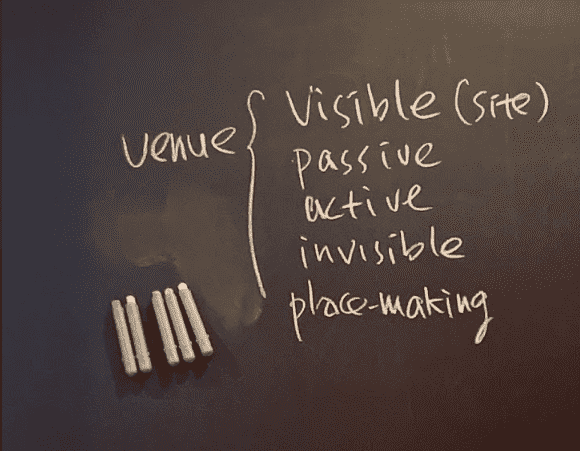 venue
visible (site)
passive
active
invisible
place-making